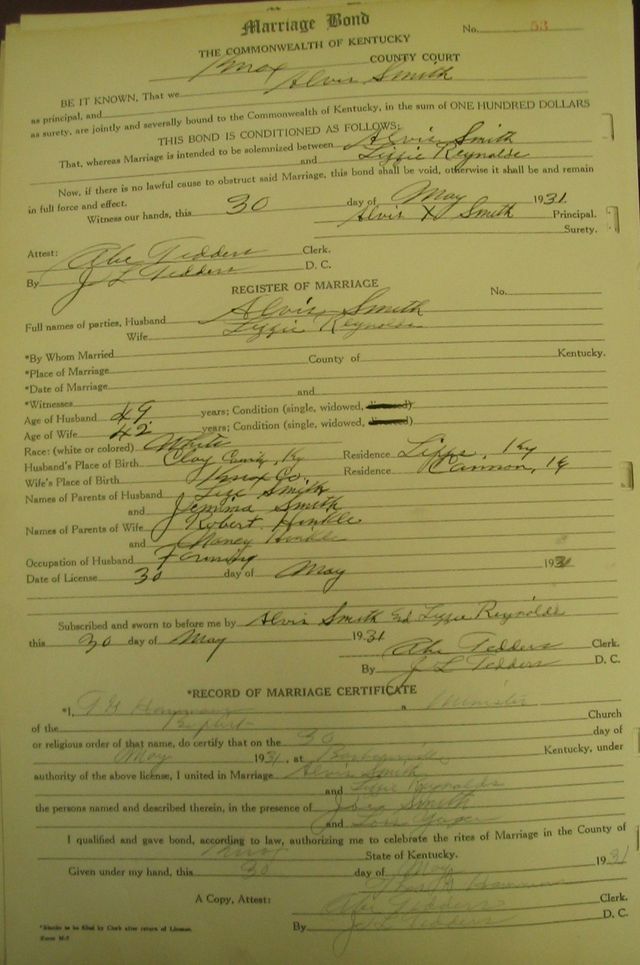 Marriage Bond
No. 53
THE COMMONWEALTH OF KENTUCKY
Knox COUNTY COURT
BE IT KNOWN, That we Alvis Smith
as principal, and
as surety, are jointly and severally bound to the Commonwealth of Kentucky, in the sum of ONE HUNDRED DOLLARS
THIS BOND IS CONDITIONED AS FOLLOWS:
That, whereas Marriage is intended to be solemnized between Alvis Smith
and Lizzie Reynolds
Now, if there is no lawful cause to obstruct said Marriage, this bond shall be void, otherwise it shall be and remain
in full force and effect.
Witness our hands, this 30 day of May 1931.
Alvis X Smith Principal.
Surety.
Attest: Abe Tedders Clerk.
By J L Tedders D. C.
REGISTER OF MARRIAGE
No.
Full names of parties, Husband Alvis Smith
Wife Lizzie Reynolds
*By Whom Married
*Place of Marriage County of Kentucky.
*Date of Marriage
*Witnesses and
Age of Husband 49 years; Condition (single, widowed, divorced)
Age of Wife 42 years; Condition (single, widowed, divorced)
Race: (white or colored) White
Husband's Place of Birth Clay County, Ky Residence Lipps, Ky
Wife's Place of Birth Knox Co. Residence Cannon, Ky
Names of Parents of Husband Smith
and Jemima Smith
Names of Parents of Wife Robert Hinkle
and Nancy Hinkle
Occupation of Husband Farming
Date of License 30 day of May 1931
Subscribed and sworn to before me by Alvis Smith and Lizzie Reynolds
this 30 day of May 1931
Abe Tedders Clerk.
By J L Tedders D. C.
*RECORD OF MARRIAGE CERTIFICATE
*I, a Minister
of the Baptist Church
or religious order of that name, do certify that on the 30 day of
May 1931, at Kentucky, under
authority of the above license, I united in Marriage Alvis Smith
and Lizzie Reynolds
the persons named and described therein, in the presence of Smith
and
I qualified and gave bond, according to law, authorizing me to celebrate the rites of Marriage in the County of
Knox State of Kentucky.
Given under my hand, this 30 day of May 1931
A Copy, Attest: Abe Tedders Clerk.
By J L Tedders D. C.
*Blanks to be filled by Clerk after return of License.
Form M-2